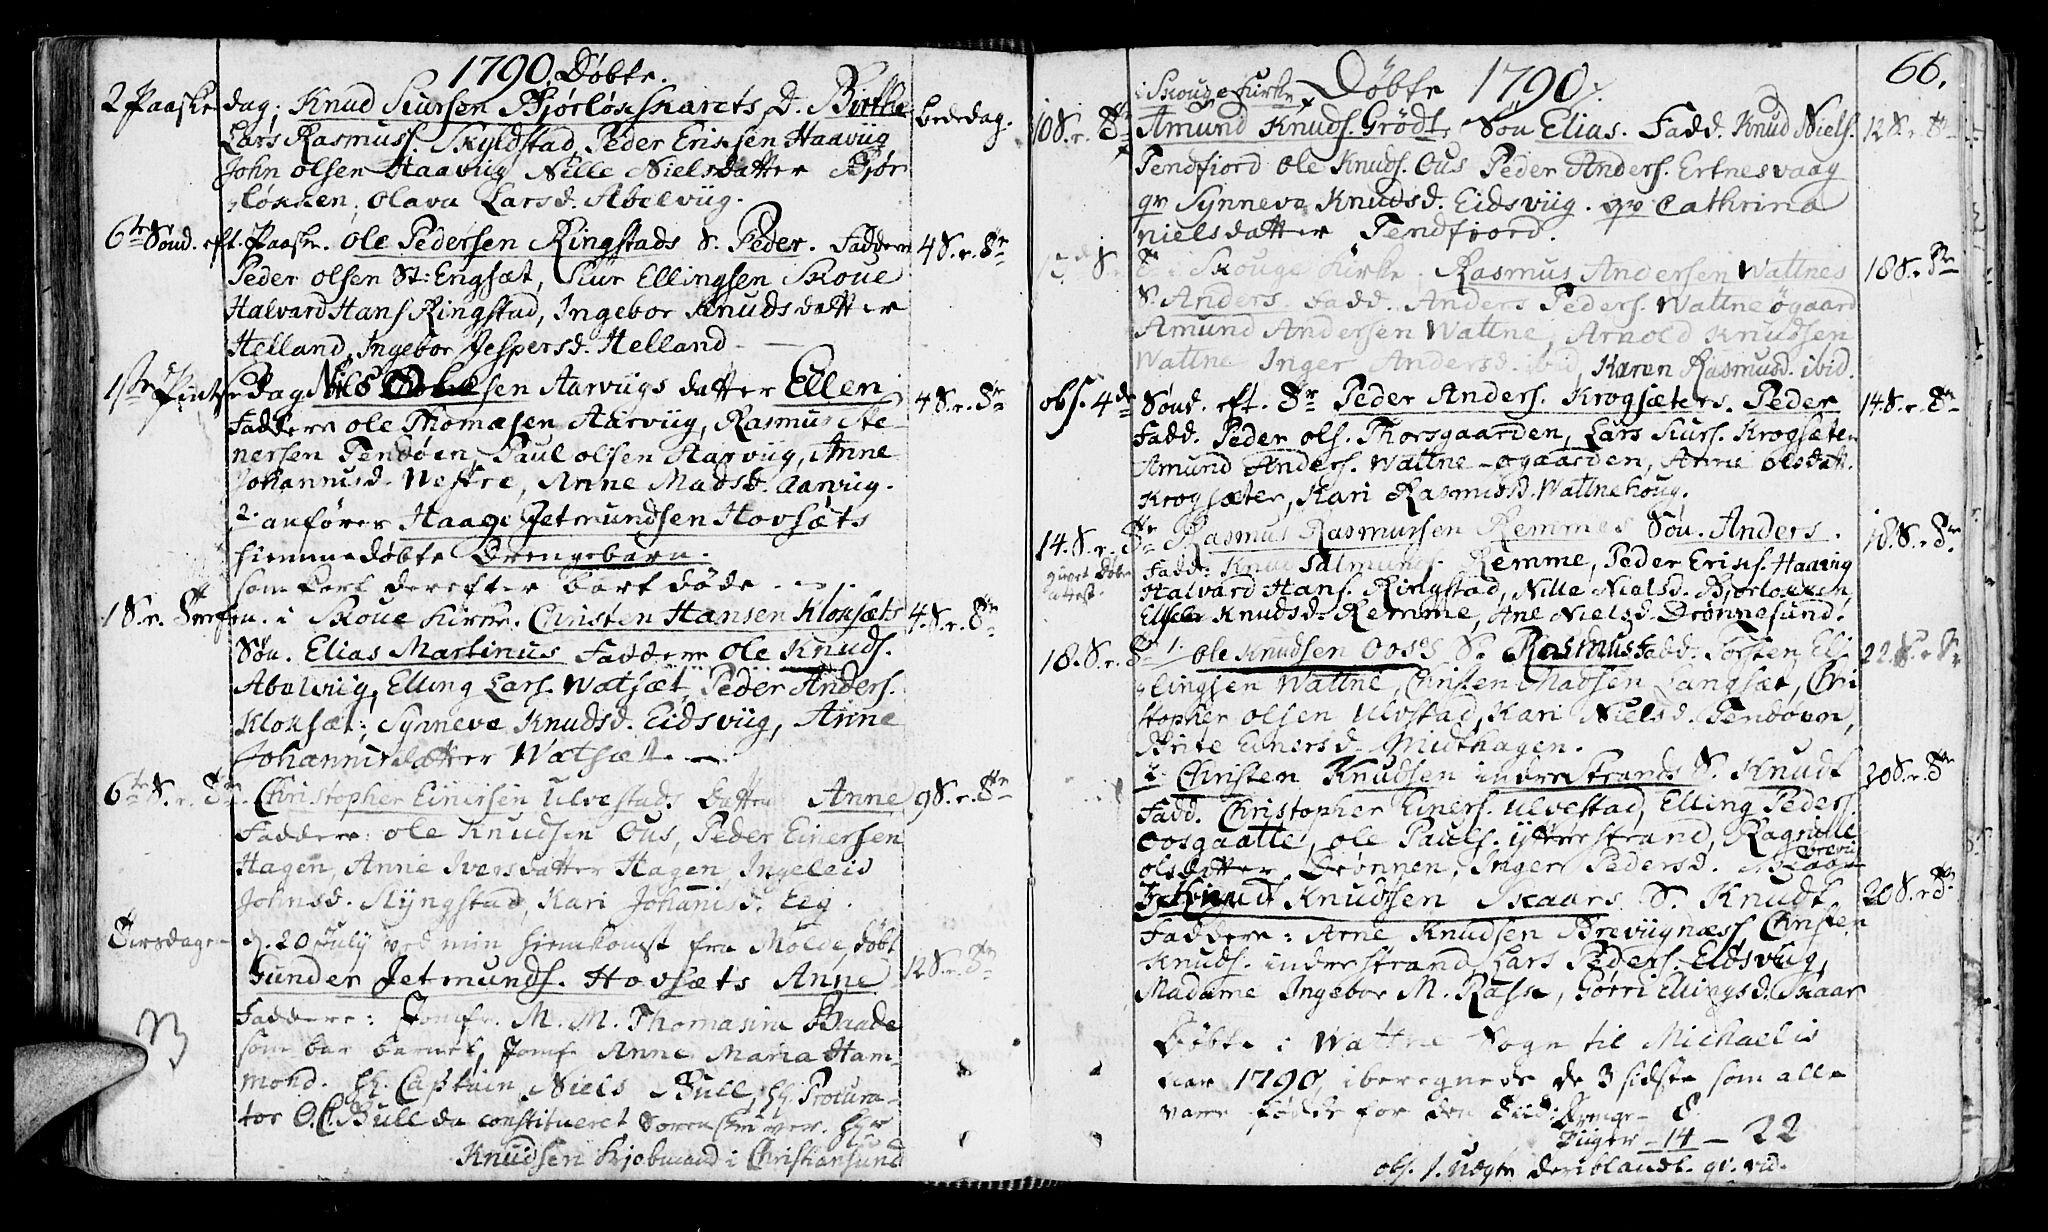 1790. Döbte.
2 Paaske dag, Knud Siursen Biörlöxskarets D. Birthe bededag.
Lars Rasmuss. Skyldstad, Peder Erixsen Haavug
John olsen Haavug Nille Nielsdatter Biör
löxken, Olava Larsd. Abelvug.
6te Sönd. eft. Paaske. Ole Pedersen Ringstads S. Peder. Faddere 4 S. r. Str
Peder olsen St: Engsæt, Siur Ellingsen Skoue
Halvard Hans. Ringstad, Ingebor Knudsdatter
Helland, Ingebor Jespersd. Helland
1ste Pintse Dag Niels sen Aarvugs datter Ellen 4 S. r. Str
Faddere ole Thomæsen Aarvug, Rasmus Ste
nersen Tendöen, Paul olsen Aarvug, Anne
Johannisd. Westre, Anne Madsd. Aarvug.
2. anförer Haage Jetmundsen Hovsæts
hiemmedöbte Drengebarn.
som kort derefter bort döde.
1 S. r. i Skoue Kirke. Christen Hansen Kloxsæts 4. S. r. Str
Sön. Elias Martinus Faddere ole Knuds.
Abelvug, Elling Lars. Watsæt, Peder Anders.
Kloxsæt, Synneve Knudsd. Eidsvug, Anne
Johannisdatter Watsæt.
6te S. r. Str. Christopher Einersen Ulvestads Datter Anne 9 S. r. Str
Faddere: ole Knudsen Ous, Peder Einersen
Hagen, Anne Iversdatter Hagen, Ingeleiv
Johnsd. Slyngstad, Kari Johannisd. Eeg.
Tirsdagen d. 20 July ved min hiemkomst fra Molde, döbt
Gunder Jetmunds. Hovsæts Anne 12 S. r. Str
Faddere: Jomfr. M. M. Thomasine Baade
som bar barnet, Jomfr. Anne Maria Ham-
mond. Hr. Captain Niels Bull, Hr. Procura-
tor O. C. Bull da constitueret Sorenschriver. Hr
Knudsen Kjøbmand i Christiansund
Döbte 1790. 66.
i Skouge Kirke
10 S. r. Str Amund Knuds. Grödt. Sön Elias. Fadd. Knud Niels. 12 S. r. Str
Tendfiord ole Knuds. Ous Peder Anders. Ertnesvaag
qv Synneva Knudsd. Eidsvug. qv Cathrina
nielsdatter Tendfiord.
13de S. r. Str i Skouge Kirke. Rasmus Andersen Wattnes 18 S. r. Str
S. Anders. Fadd. Anders Peders. Wattneögaard
Amund Andersen Wattne, Arnold Knudsen
Wattne Inger Andersd. ibid, Karen Rasmusd. ibid.
obs. 4de Sönd. eft. Str Peder Anders. Krogsæters. Peder 14. S. r. Str
Fadd. Peder ols. Thorsgaarden, Lars Siurs. Krogsæter
Amund Anders. Wattne-ögaarden, Anne olsdatt.
Krogsæter, Kari Rasmusd. Wattnehoug.
14. S. r. Str Rasmus Rasmussen Remmes Sön. Anders. 18. S. r. Str
givet Döbe
attest.
Fadd: Knud Salmunds. Remme, Peder Erixs. Haavig
Halvard Hans. Ringstad, Nille Nielsd. Biörloxken,
Knudsd. Remme, Ane Nielsd. Drönnesund.
18. S. r. Str 1. Ole Knudsen Oos's S. Rasmus Fadd. Torsten El- 22. S. r. Str
lingsen Wattne, Christen Madsen Langsæt, Chri
stopher olsen Ulvstad, Kari Nielsd. Tendöen,
Brite Einersd. Midthagen.
2. Christen Knudsen indre Strands S. Knudt 20 S. r. Str
Fadd. Christopher Einers. Ulvestad, Elling Peders.
Oosgaatte, ole Pauls. ytterstrand, Ragnille
olsdatter Drönnen, Inger Pedersd.
3. Knud Knudsen Skaars S. Knudt 20 S. r Str
Faddere: Arne Knudsen Brevugnæss Christen
Knuds. indrestrand Lars Peders. Eidsvug,
Madame Ingebor M. Rasch, Görri Ellingsd. Skaar
Döbte i Wattne Sogn til Michaelis
1790, iberegnede de 3 sidste som alle
vare födde för den tiid: Drenge - 8
Piiger - 14 - 22
obs. 1. uægte deriblandt. qv. vid.